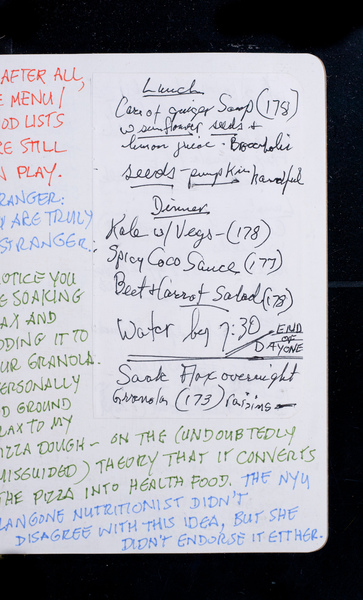 AFTER ALL,
E MENU/
OD LISTS
RE STILL
N PLAY.
RANGER:
ARE TRULY
STRANGER:
OTICE YOU
E SOAKING
AX AND
DDING IT TO
UR GRANOLA.
ERSONALLY
D GROUND
LAX TO MY
IZZA DOUGH - ON THE (UNDOUBTEDLY
MISGUIDED) THEORY THAT IT CONVERTS
THE PIZZA INTO HEALTH FOOD. THE NYU
LANGONE NUTRITIONIST DIDN'T
DISAGREE WITH THIS IDEA, BUT SHE
DIDN'T ENDORSE IT EITHER.
Lunch
Carrot ginger Soup (178)
w sunflower seeds +
lemon juice
seeds - pumpkin handful
Dinner
Kale w/ Vegs - (178)
Spicy Coco Sauce (177)
Beet + Carrot Salad (178)
Water by 7:30
END
OF
DAY ONE
Soak Flax overnight
Granola (173) raisins